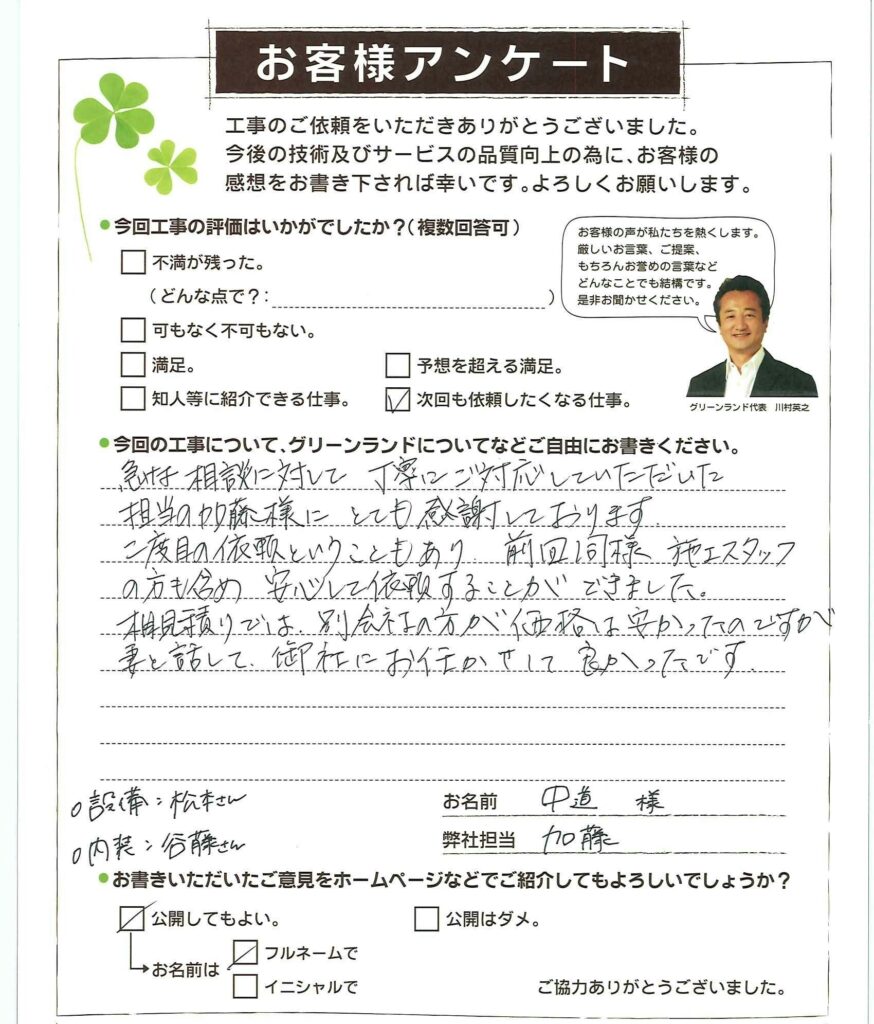 お客様アンケート
工事のご依頼をいただきありがとうございました。
今後の技術及びサービスの品質向上の為に、お客様の
感想をお書き下されば幸いです。よろしくお願いします。
今回工事の評価はいかがでしたか？（複数回答可）
不満が残った。
（どんな点で？：　）
可もなく不可もない。
満足。
予想を超える満足。
知人等に紹介できる仕事。
次回も依頼したくなる仕事。
お客様の声が私たちを熱くします。
厳しいお言葉、ご提案、
もちろんお誉めの言葉など
どんなことでも結構です。
是非お聞かせください。
グリーンランド代表　川村英之
今回の工事について、グリーンランドについてなどご自由にお書きください。
急な相談に対して 丁寧にご対応していただいた
担当の加藤様に とても感謝しております
二度目の依頼ということもあり、前回同様 施工スタッフ
の方も含め 安心して依頼することができました。
相見積りでは、別会社の方が価格は安かったのですが
妻と話して、御社にお任かせして 良かったです。
○設備：松本さん
○内装：谷藤さん
お名前 中道 様
弊社担当 加藤
お書きいただいたご意見をホームページなどでご紹介してもよろしいでしょうか？
公開してもよい。
公開はダメ。
お名前は
フルネームで
イニシャルで
ご協力ありがとうございました。